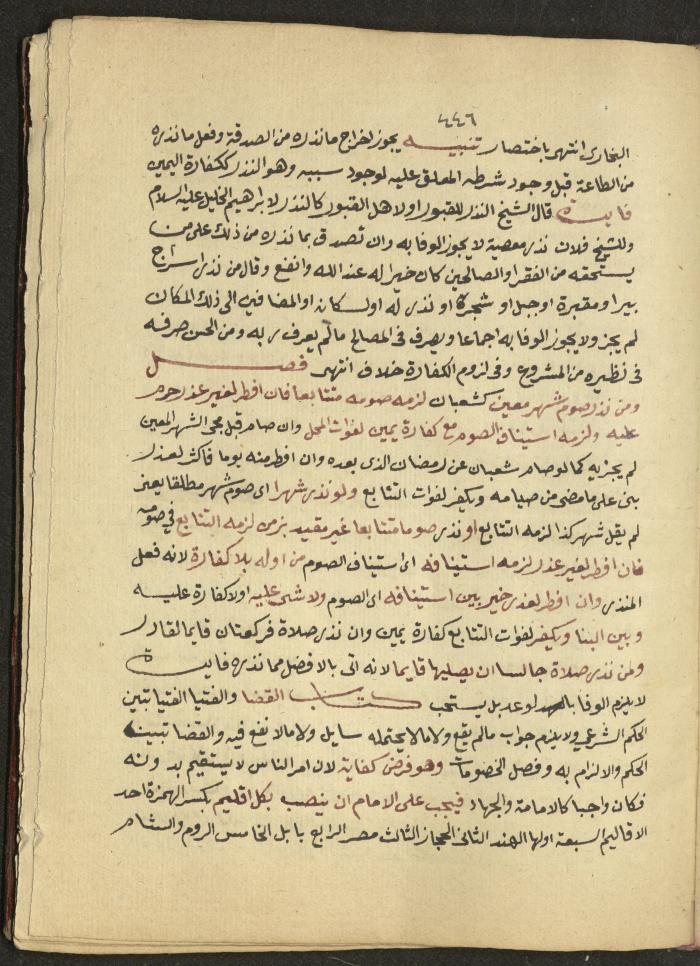 ٤٤٦
البخاري انتهى باختصار تنبيه يجوز اخراج ما نذره من الصدقة وفعل ما نذره
من الطاعة قبل وجود شرطه المعلق عليه لوجود سببه وهو النذر ككفارة اليمين
فايدة قال الشيخ النذر للقبور او لاهل القبور كالنذر لابراهيم الخليل عليه السلام
وللشيخ فلان نذر معصية لا يجوز الوفا به وان تصدق بما نذره من ذلك على من
يستحقه من الفقرا والصالحين كان خيرا له عند الله وانفع وقال من نذر اسراج
بير او مقبرة او جبل او شجرة او نذر له او لسكانه او المضافين الى ذلك المكان
لم يجز ولا يجوز الوفا به اجماعا ويصرف في المصالح ما لم يعرف ربه ومن الحسن صرفه
في نظيره من المشروع وفي لزوم الكفارة خلاف انتهى فصل
ومن نذر صوم شهر معين كشعبان لزمه صومه متتابعا فان افطر لغير عذر حرم
عليه ولزمه استيناف الصوم مع كفارة يمين لفوات المحل وان صام قبل مجى الشهر المعين
لم يجزيه كما لو صام شعبان عن رمضان الذى بعده وان افطر منه يوما فاكثر لعذر
بنى على ما مضى من صيامه ويكفر لفوات التتابع ولو نذر شهرا اى صوم شهر مطلقا يعنى
لم يقل شهر كذا لزمه التتابع او نذر صوما متتابعا غير مقيد بزمن لزمه التتابع في صومه
فان افطر لغير عذر لزمه استينافه اى استيناف الصوم من اوله بلا كفارة لانه فعل
المنذر وان افطر لعذر خير بين استينافه اى الصوم ولا شى عليه اولا كفارة عليه
وبين البنا ويكفر لفوات التتابع كفارة يمين وان نذر صلاة فركعتان قايما لقادر
ومن نذر صلاة جالسا ان يصليها قايما لانه اتى بالافضل مما نذره فايدة
لا يلزم الوفا بالوعد بل يستحب كتاب القضا والفتيا الفتيا تبين
الحكم الشرعي ولا يلزم جواب ما لم يقع ولا ما لا يحتمله سايل ولا ما لا نفع فيه والقضا تبيينه
الحكم والالزام به وفصل الخصومات وهو فرض كفاية لان امر الناس لا يستقيم بدونه
فكان واجبا كالامامة والجهاد فيجب على الامام ان ينصب بكل اقليم بكسر الهمزة احد
الاقاليم السبعة اولها الهند الثاني الحجاز الثالث مصر الرابع بابل الخامس الروم والشام